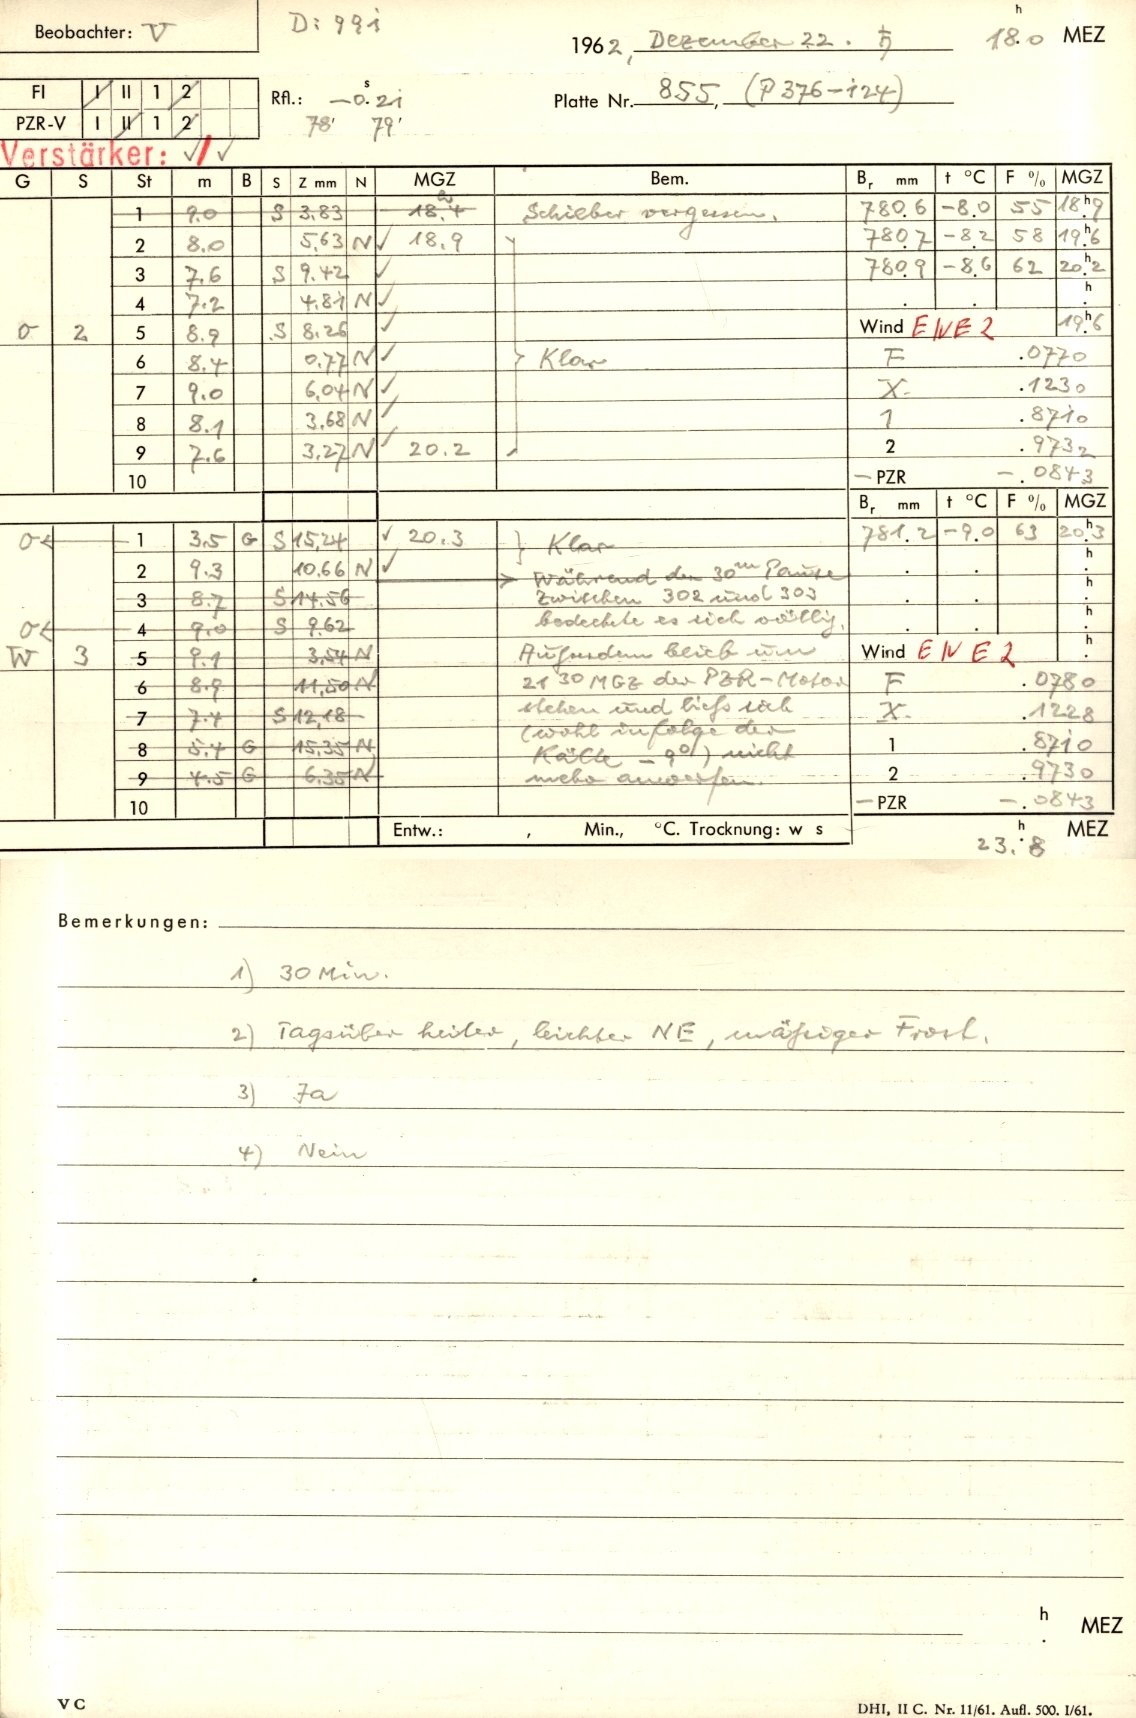 Beobachter: V
D: 991
1962, Dezember 22. ♄ 18.ʰ0 MEZ
FI I II 1 2
Rfl.: -0.ˢ21
Platte Nr. 855, (P 376-124)
PZR-V I II 1 2
78' 79'
Verstärker: ✓/✓
G S St m B S Z mm N MGZ Bem. Br mm t °C F % MGZ
1 9.0 S 3,83 18.4 Schieber vergessen. 780.6 -8.0 55 18.ʰ9
2 8.0 5,63 N ✓ 18.9 780.7 -8.2 58 19.ʰ6
3 7.6 S 9.42 ✓ 780.9 -8.6 62 20.ʰ2
4 7.2 4.81 N ✓ . . h .
σ 2 5 8.9 S 8.26 ✓ Wind ENE 2 19.ʰ6
6 8.4 0,77 N ✓ } Klar F .0770
7 9.0 6,04 N ✓ X .1230
8 8.1 3,68 N ✓ 1 .8710
9 7.6 3,27 N ✓ 20.2 2 .9732
10 - PZR -.0843
Br mm t °C F % MGZ
σ 1 3.5 G S 15,24 ✓ 20.3 } Klar 781.2 -9.0 63 20.ʰ3
2 9.3 10,66 N ✓ > Während der 30ᵐ Pause . . h .
3 8.7 S 14,56 zwischen 302 und 303 . . h .
σ 4 9.0 S 9.62 bedeckte es sich völlig. . . h .
W 3 5 9.1 3,54 N Außerdem blieb um Wind ENE 2 h .
6 8.9 11,50 N 21³⁰ MGZ der PZR-Motor F .0780
7 7.4 S 12,18 stehen und ließ sich X .1228
(wohl infolge der
8 5.4 G 15,35 N Kälte -9°) nicht 1 .8710
9 4.5 G 6,35 N mehr anwerfen. 2 .9730
10 - PZR -.0843
Entw.: , Min., °C. Trocknung: w s
23.ʰ8 MEZ
Bemerkungen:
1) 30 Min.
2) Tagsüber heiter, leichter NE, mäßiger Frost.
3) Ja
4) Nein
h . MEZ
V C
DHI, II C. Nr. 11/61. Aufl. 500. I/61.